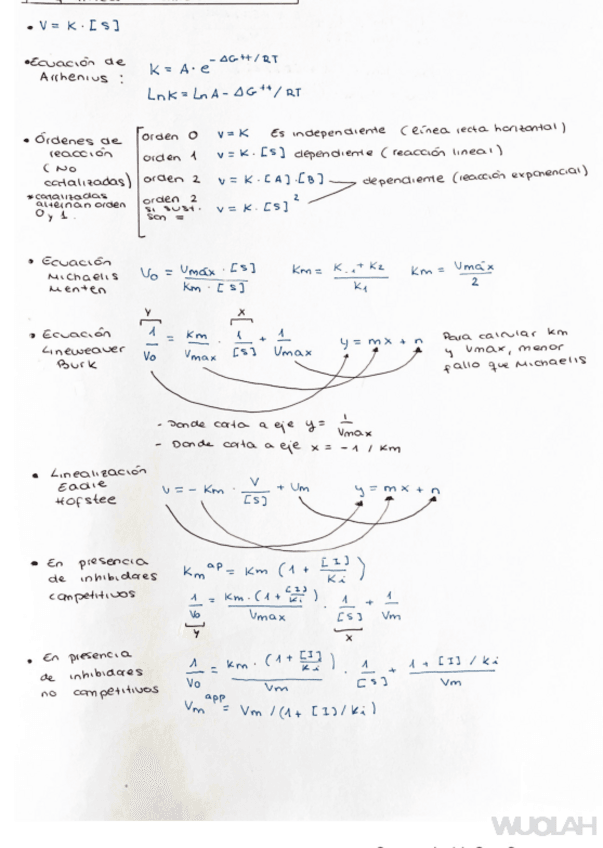 • V = K · [S]
• Ecuación de Arrhenius :
K = A · e^-ΔG++/RT
LnK = LnA - ΔG++/RT
• Órdenes de reacción (No catalizadas)
* catalizadas alternan orden 0 y 1.
orden 0 v = K Es independiente (línea recta horizontal)
orden 1 v = K · [S] dependiente (reacción lineal)
orden 2 v = K · [A] · [B] dependiente (reacción exponencial)
orden 2 si sust. son = v = K · [S]²
• Ecuación Michaelis Menten
Vo = Vmáx · [S] / Km · [S] Km = K-1 + K2 / K1 Km = Vmax / 2
Y X
• Ecuación Lineweaver Burk
1/Vo = Km/Vmax · 1/[S] + 1/Vmax y = mx + n
Para calcular km y Vmax, menor fallo que Michaelis
- Donde corta a eje y = 1/Vmax
- Donde corta a eje x = -1 / Km
• Linealización Eadie Hofstee
V = - Km · V/[S] + Vm y = mx + n
• En presencia de inhibidores competitivos
Km^ap = Km (1 + [I]/Ki)
1/Vo = Km · (1 + [I]/Ki) / Vmax · 1/[S] + 1/Vm
Y X
• En presencia de inhibidores no competitivos
1/Vo = Km · (1 + [I]/Ki) / Vm · 1/[S] + 1 + [I] / Ki / Vm
Vm^app = Vm / (1 + [I] / Ki)
WUOLAH